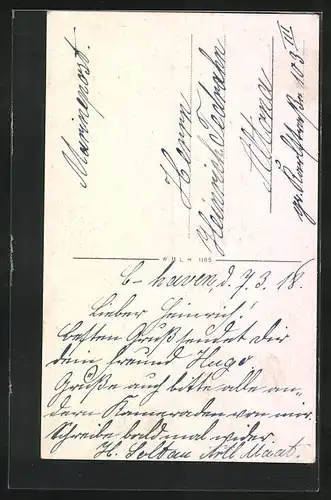 Marinepost.
Herrn
Heinrich
Altona
gr. Karlstraße 103 III
W.H.L.H 1185
C-haven, d. 7.3.18.
Lieber Heinrich!
Besten Gruß sendet Dir
dein Freund Hugo
Grüße auch bitte alle an-
dern Kameraden von mir.
Schreibe bald mal wider.
H. Soltau Artl Maat.